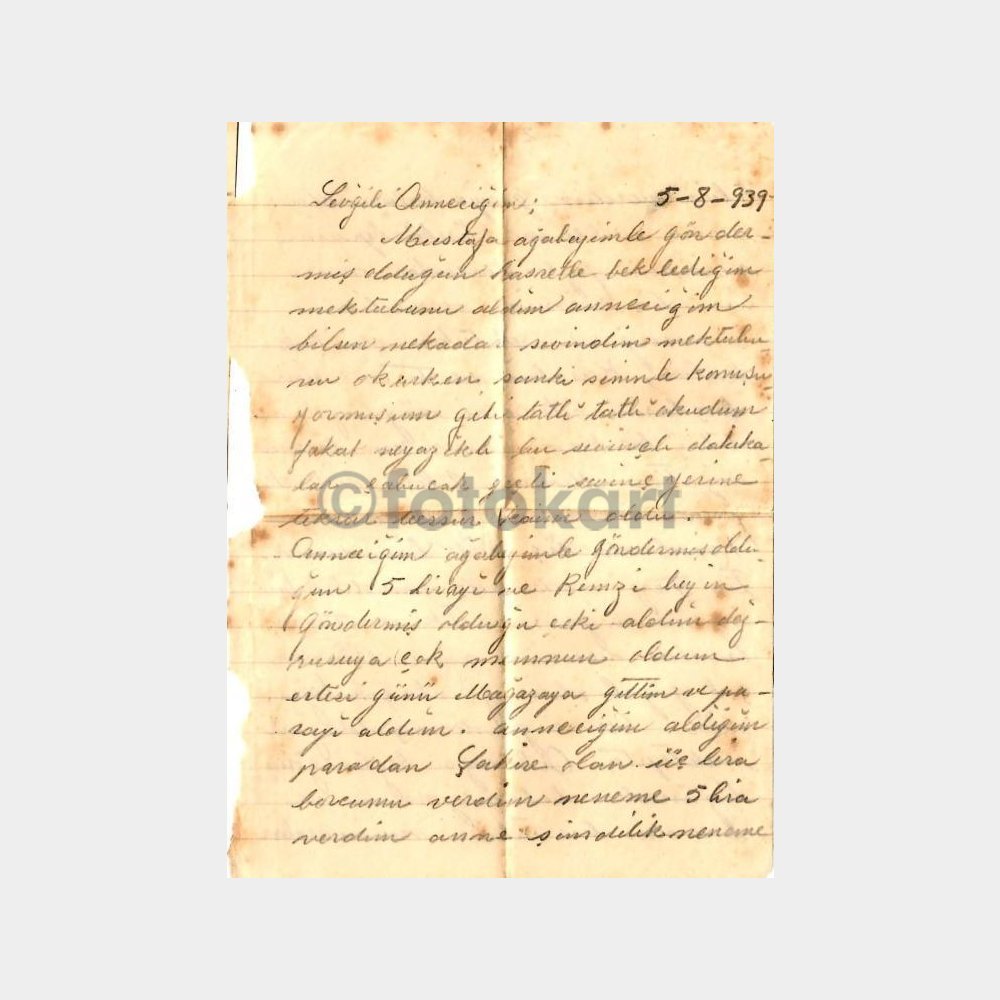 Sevgili Anneciğim; 5-8-939
Mustafa ağabeyimle gönder-
miş olduğun hasretle beklediğim
mektubunu aldım anneciğim
bilsen nekadar sevindim mektubu-
nu okurken sanki seninle konuşu-
yormuşum gibi tatlı tatlı okudum
fakat neyazıkki bu sevinçli dakika-
lar çabucak geçti sevinç yerine
teessür kaim oldu.
Anneciğim ağabeyimle göndermiş oldu-
ğun 5 lirayı ve Remzi beyin
Göndermiş olduğu çeki aldım doğ-
rusuya çok memnun oldum
ertesi günü Mağazaya gittim ve pa-
rayı aldım. anneciğim aldığım
paradan Şakire olan üç lira
borcumu verdim neneme 5 lira
verdim anne şimdilik neneme
©fotokart